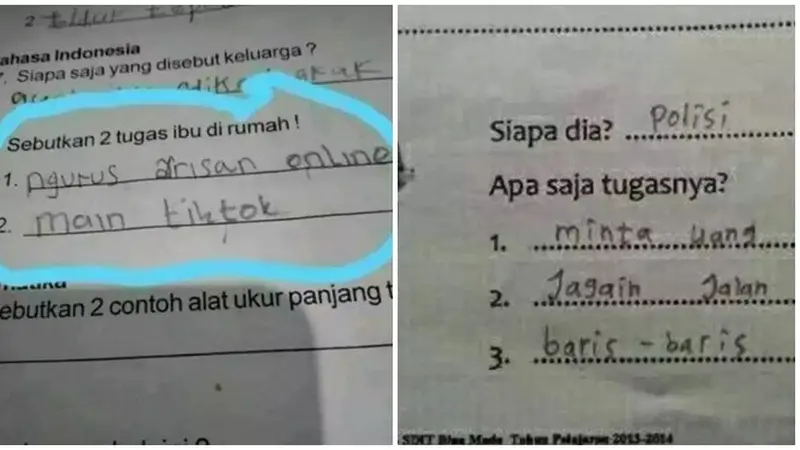 2
ahasa Indonesia
Siapa saja yang disebut keluarga ?
Sebutkan 2 tugas ibu di rumah !
1. ngurus arisan online
2. main tiktok
ebutkan 2 contoh alat ukur panjang t
Siapa dia? polisi
Apa saja tugasnya?
1. minta uang
2. Jagain Jalan
3. baris - baris
SDIT Blue Mada Tahun Pelajaran 2013-2014